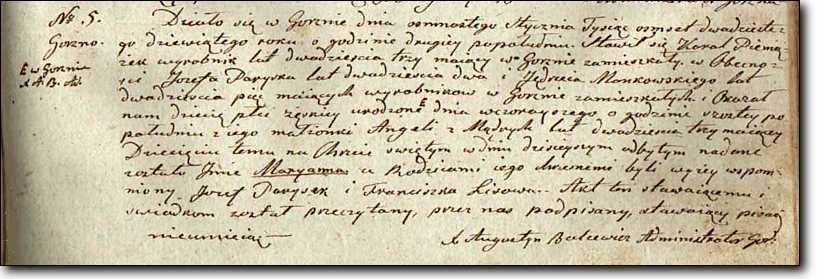 No. 5. Działo się w Gorznie dnia osmnastego Stycznia Tysiąc osmset dwudzieste-
Gorzno. go dziewiątego roku o godzinie drugiey popołudniu. Stawił się Karol
rek wyrobnik lat dwadzieścia trzy maiący w Gorznie zamieszkały, w Obecno-
ści Jozefa Paryska lat dwadzieścia dwa i Jędrzeia Monkowskiego lat
dwadzieścia pięć maiących wyrobnikow w Gorznie zamieszkałych i Okazał
nam dziecię płci żęskiey urodzone dnia wczorayszego o godzinie szostey po
południu z iego małżonki Angeli z Mądrych lat dwadzieścia trzy maiącey
Dziecięciu temu na Chrzcie świętym w dniu dzisieyszym odbytym nadane
zostało Jmie Maryanna a Rodzicami iego chrzesnemi byli wyżey wspom-
niony Jozef Parysek i Franciszka Lisowa. Akt ten stawaiącemu i
swiadkom został przeczytany, przez nas podpisany, stawaiący pisać
nieumieią
X Augustyn Balcewicz Administrator Gor.